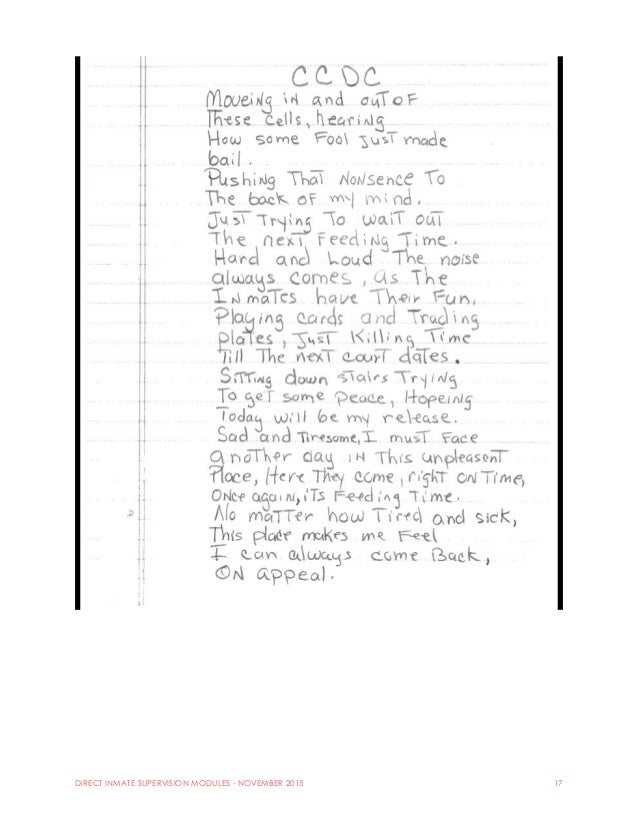 CCDC
Moveing in and out of
These cells, hearing
How some Fool Just made
bail.
Pushing That Nonsence To
The back of my mind.
Just Trying To wait out
The next Feeding Time.
Hard and Loud The noise
always comes, as The
Inmates have Their Fun,
Playing cards and Trading
plates, Just Killing Time
Till The next court dates.
Sitting down stairs Trying
To get some peace, Hopeing
Today will be my release.
Sad and Tiresome, I must Face
another day in This unpleasent
Place, Here They come, right on Time,
Once again, iTs Feeding Time.
No matter how Tired and sick,
This place makes me Feel
I can always come Back,
On appeal.
DIRECT INMATE SUPERVISION MODULES - NOVEMBER 2015 17